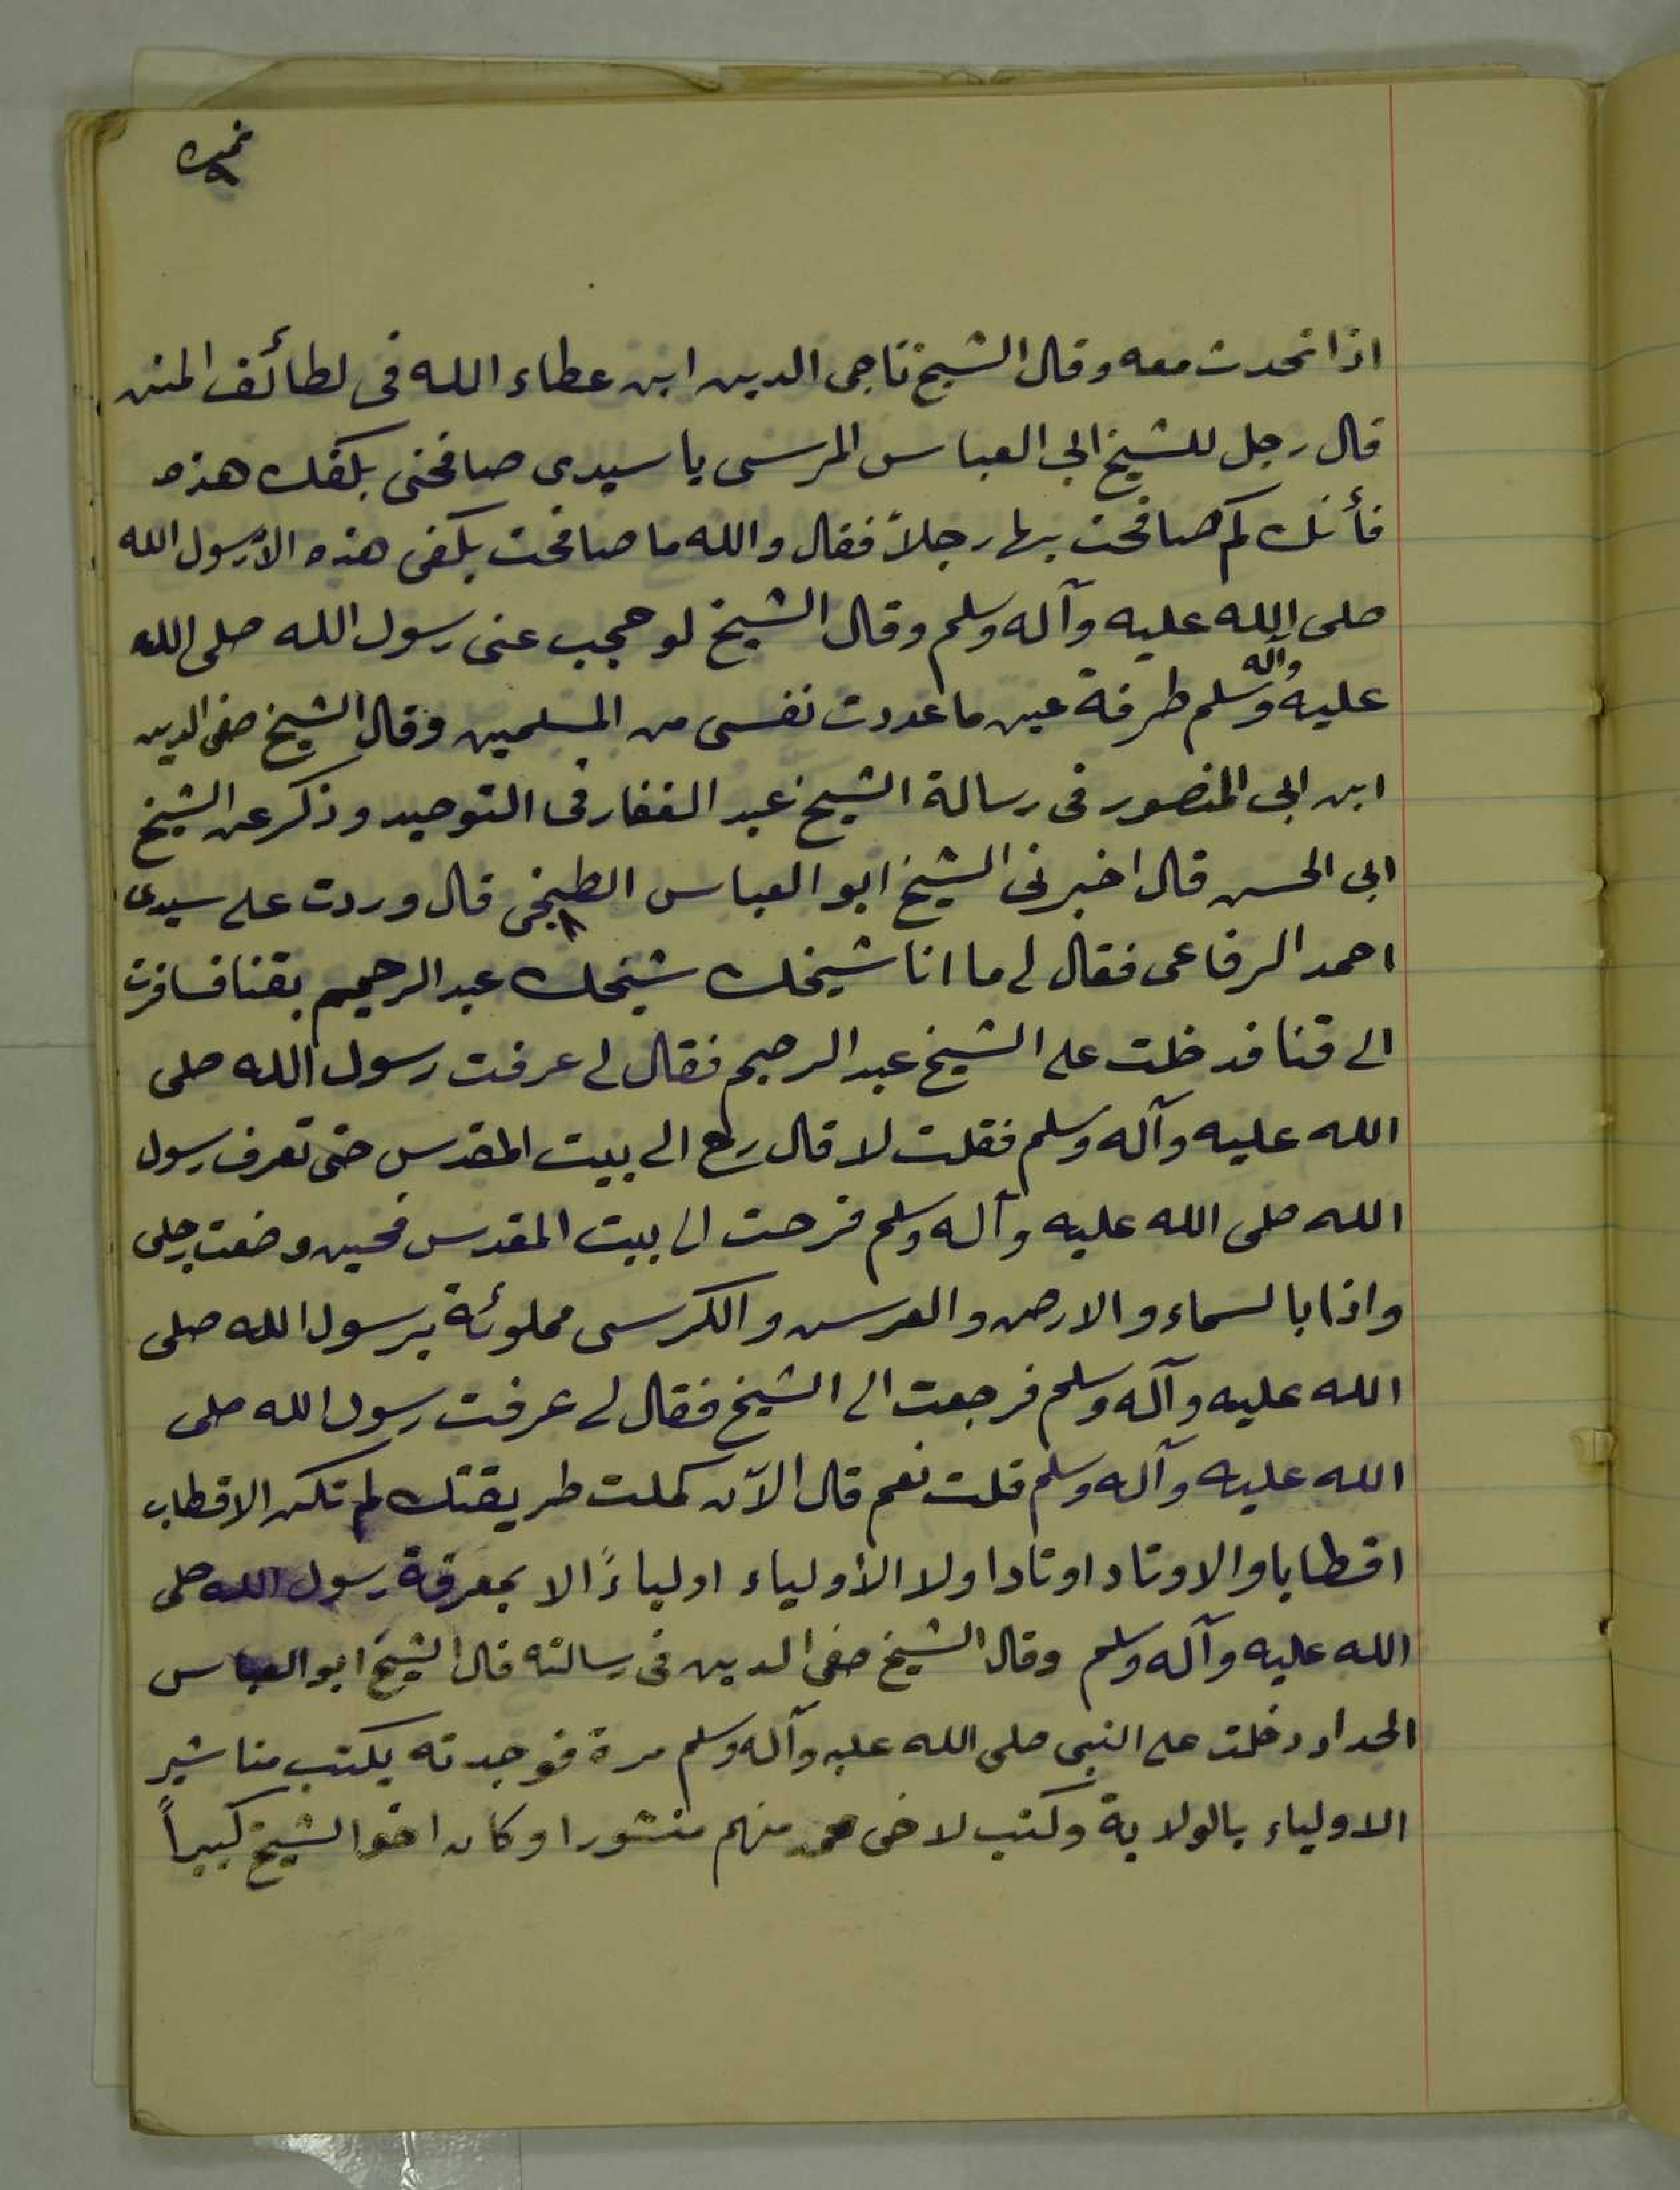 نمره ٩
اذا تحدث معه وقال الشيخ تاجى الدين ابن عطاء الله فى لطائف المنن
قال رجل للشيخ ابى العباس المرسى يا سيدى صافحنى بكفك هذه
فأنك كم صافحت بها رجلاً فقال والله ما صافحت بكفى هذه الا رسول الله
صلى الله عليه وآله وسلم وقال الشيخ لو حجب عنى رسول الله صلى الله
عليه وآله وسلم طرفة عين ما عددت نفسى من المسلمين وقال الشيخ صفى الدين
ابن ابى المنصور فى رسالة الشيخ عبد الغفار فى التوحيد وذكر عن الشيخ
ابى الحسن قال اخبرنى الشيخ ابو العباس الطبخى قال وردت على سيدى
احمد الرفاعى فقال لى ما انا شيخك شيخك عبد الرحيم بقنا فسافرت
الى قنا فدخلت على الشيخ عبد الرحيم فقال لى عرفت رسول الله صلى
الله عليه وآله وسلم فقلت لا قال رح الى بيت المقدس حتى تعرف رسول
الله صلى الله عليه وآله وسلم فرحت الى بيت المقدس فحين وضعت رجلى
واذا بالسماء والارض والعرس والكرسى مملوئة برسول الله صلى
الله عليه وآله وسلم فرجعت الى الشيخ فقال لى عرفت رسول الله صلى
الله عليه وآله وسلم قلت نعم قال الآن كملت طريقتك لم تكن الاقطاب
اقطابا والاوتاد اوتادا ولا الأولياء اولياءً الا بمعرفة رسول الله صلى
الله عليه وآله وسلم وقال الشيخ صفى الدين فى رسالته قال الشيخ ابو العباس
الحداد دخلت على النبى صلى الله عليه وآله وسلم مرة فوجدته يكتب مناشير
الاولياء بالولاية وكتب لاخى محمد منهم منشورا وكان اخو الشيخ كبيراً